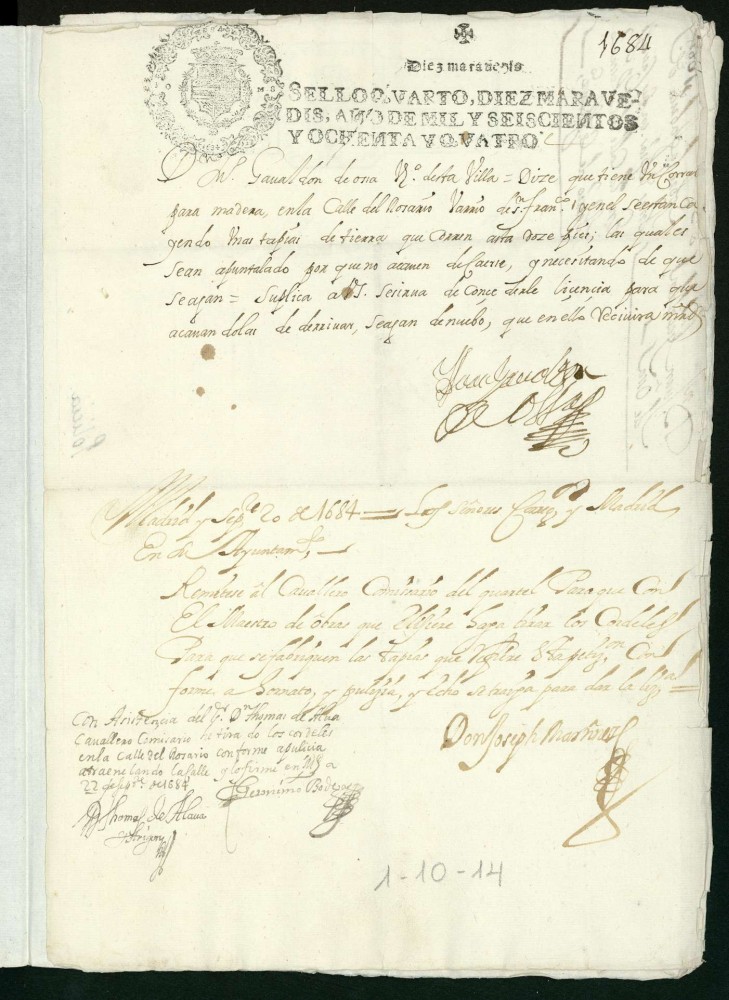 1684
Diez maravedis
SELLO QVARTO, DIEZ MARAVE-
DIS, AÑO DE MIL Y SEISCIENTOS
Y OCHENTA Y QVATRO
Gavaldon de osa Vº. desta Villa = Dize que tiene Un Corral
para madera, en la Calle del Rosario Varrio de Sn. franco. y en el se estan Ca
yendo Unas tapias de tierra que Corren asta doze pies; las quales
sean apuntalado por que no acaven de Caerse, y necesitando de que
se agan = Suplica a VS. se sirva de Concederle licencia para que
acavandolas de derrivar, se agan de nuebo, que en ello Recivira mrd
de Ossa
Madrid y Sepe. 20 de 1684 = Los señores Correxor y Madrid
En su Ayuntamto. —
Remitese al Cavallero Comisario del quartel Para que Con
El Maestro de obras que Elixiere haga tirar los Cordeles
Para que se fabriquen las tapias que Refiere Esta petizon. Con
forme a hornato, y pulizia, y Echo se traiga para dar la liza. =
Con Asistencia del Sr. Dn. Thomas de Alava
Cavallero Comisario se tira do los cordeles
en la Calle del Rosario conforme a pulicia
atraenelando la Calle y lo firme en Md a
22 de Sepre. de 1684
Don Joseph Martinez
Geronimo
D Thomas de Alava
y Arigon
1-10-14